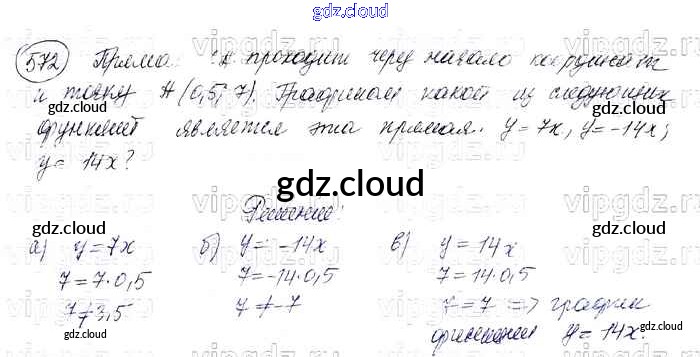 gdz.cloud
572 Прямая проходит через начало координат
и точку A (0,5; 7). Графиком какой из следующих
gdz.cloud gdz.cloud
функций является эта прямая: y = 7x, y = -14x;
y = 14x?
gdz.cloud
Решение:
а) y = 7x б) y = -14x в) y = 14x
7 = 7·0,5 7 = -14·0,5 7 = 14·0,5
7 ≠ 3,5 7 ≠ -7 7 = 7 => график
gdz.cloud gdz.cloud
функции y = 14x.